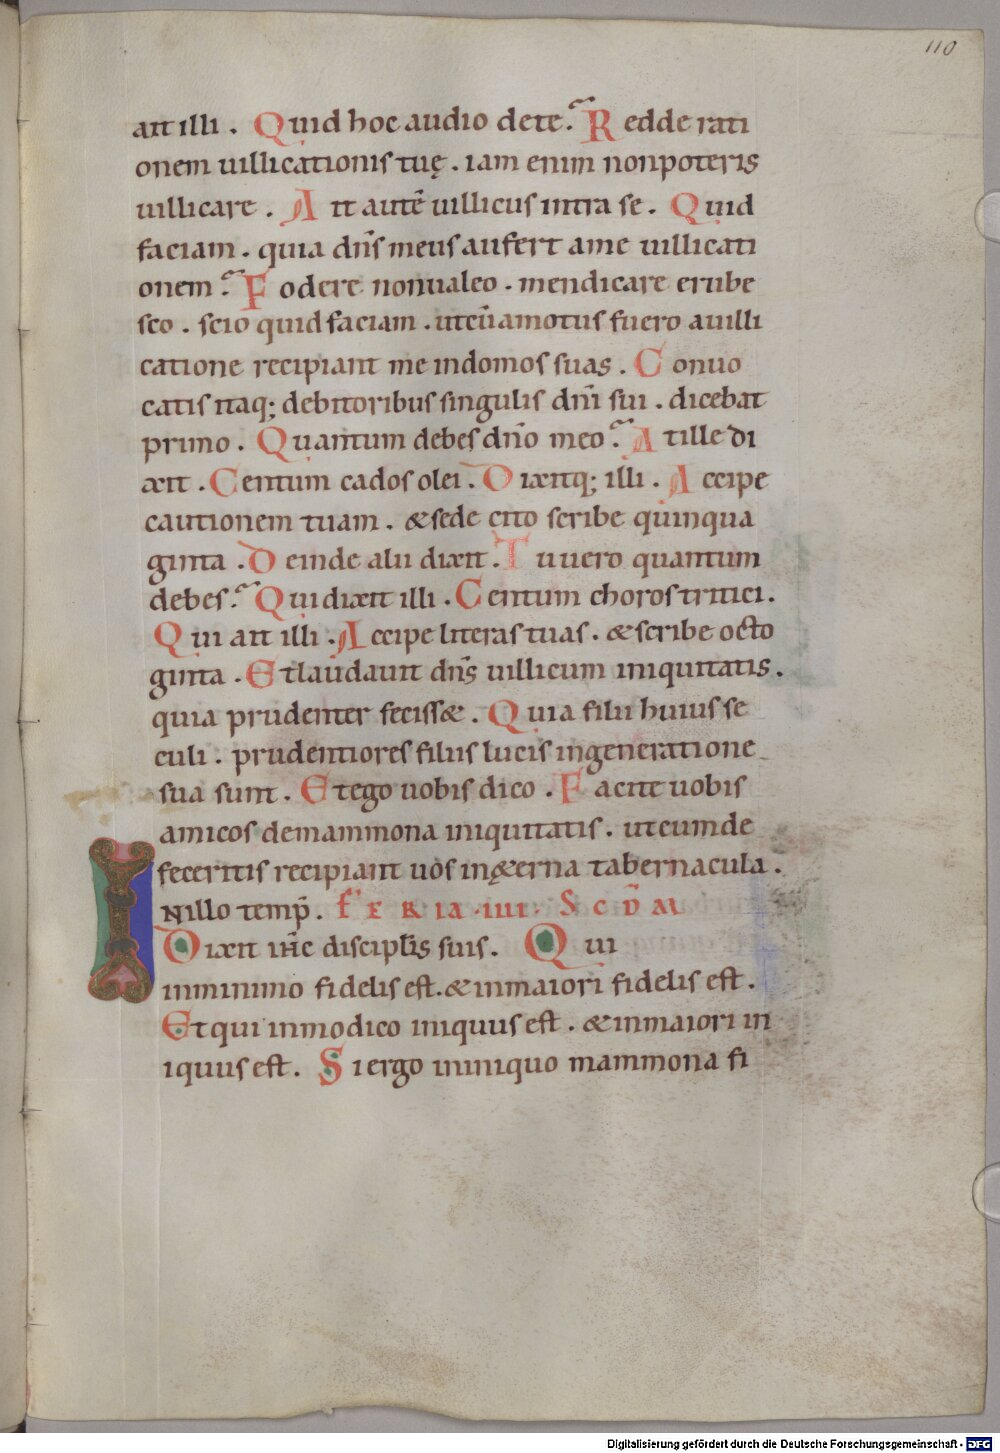 110
ait illi . Quid hoc audio dete. Redde rati
onem uillicationis tuę . iam enim nonpoteris
uillicare . Ait autē uillicus intra se . Quid
faciam . quia dn̄s meus aufert ame uillicati
onem. Fodere nonualeo . mendicare erube
sco . scio quid faciam . utcū amotus fuero auilli
catione recipiant me indomos suas . Conuo
catis itaq; debitoribus singulis dn̄i sui . dicebat
primo . Quantum debes dn̄o meo. Atille di
xit . Centum cados olei . Dixitq; illi . Accipe
cautionem tuam . & sede cito scribe quinqua
ginta . Deinde alii dixit . Tu uero quantum
debes. Qui dixit illi . Centum choros tritici .
Qui ait illi . Accipe literas tuas . & scribe octo
ginta . Et laudauit dn̄s uillicum iniquitatis .
quia prudenter feciss& . Quia filii huius se
culi . prudentiores filiis lucis ingeneratione
sua sunt . Et ego uobis dico . Facite uobis
amicos demammona iniquitatis . ut cum de
feceritis recipiant uos in&erna tabernacula .
IN illo temp̄ . FERIA . IIII . SCD̄M
Dixit ih̄c discipl̄is suis . Qui
inminimo fidelis est . & inmaiori fidelis est .
Et qui inmodico iniquus est . & inmaiori in
iquus est . Si ergo ininiquo mammona fi
Digitalisierung gefördert durch die Deutsche Forschungsgemeinschaft - DFG